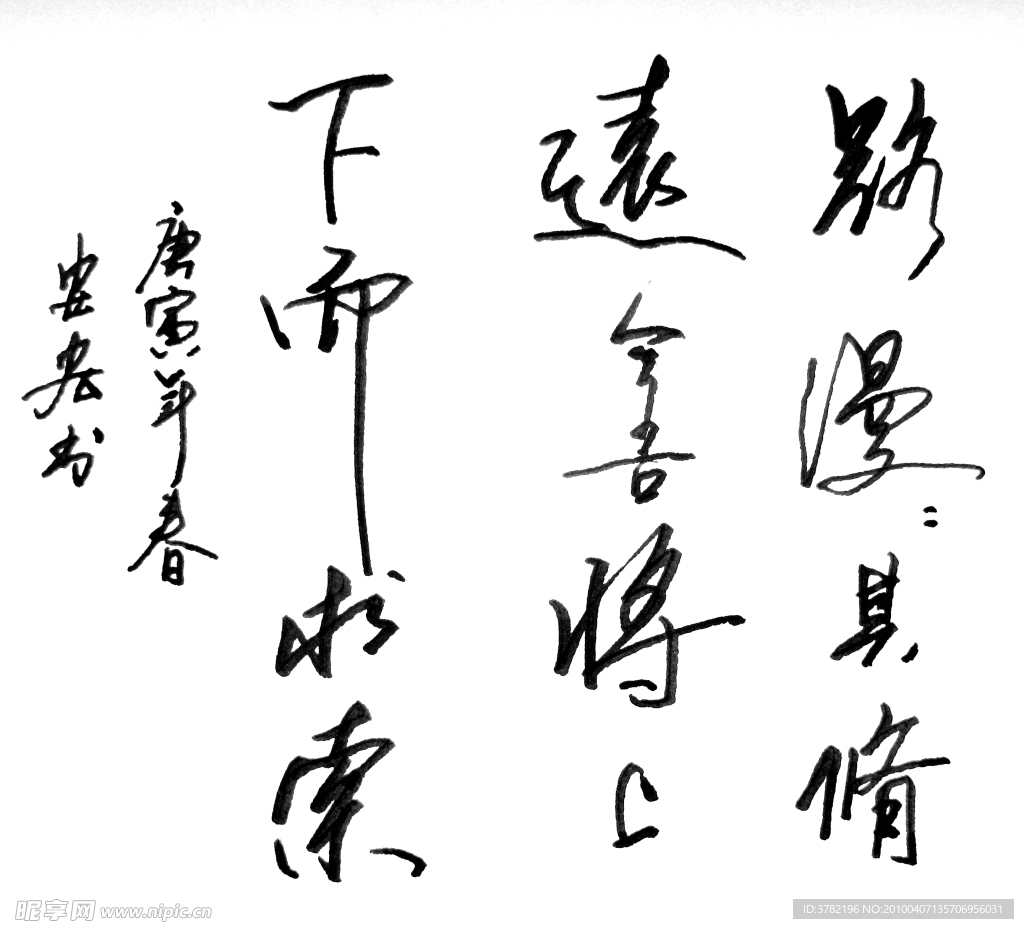 路漫〻其脩
遠余吾將上
下而求索
庚寅年春
书
昵享网 www.nipic.cn
ID:3782196 NO:20100407135706956031